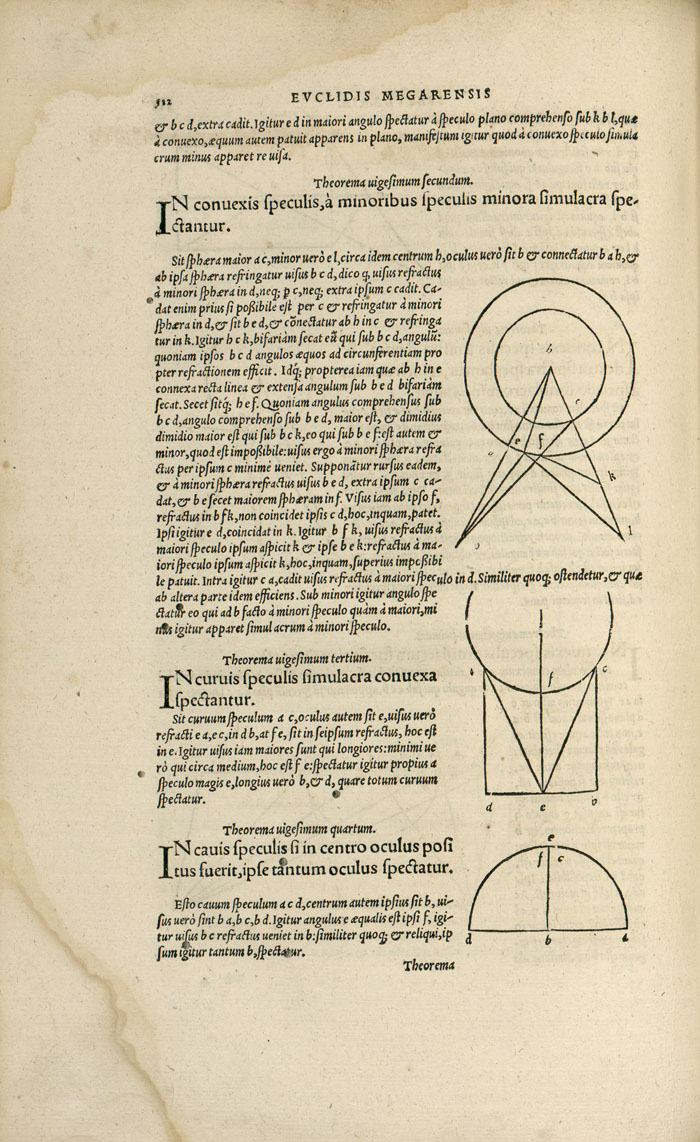 512
EVCLIDIS MEGARENSIS
& b c d, extra cadit. Igitur e d in maiori angulo spectatur à speculo plano comprehenso sub k b l, quæ
à conuexo, æquum autem patuit apparens in plano, manifestum igitur quod à conuexo speculo simula
crum minus apparet re uisa.
Theorema uigesimum secundum.
IN conuexis speculis, à minoribus speculis minora simulacra spe-
ctantur.
Sit sphæra maior a c, minor uerò e l, circa idem centrum h, oculus uerò sit b & connectatur b a h, &
ab ipsa sphæra refringatur uisus b c d, dico q, uisus refractus
à minori sphæra in d, neq; p c, neq; extra ipsum c cadit. Ca-
dat enim prius si poßibile est per c & refringatur à minori
sphæra in d, & sit b e d, & cōnectatur ab h in c & refringa
tur in k. Igitur h c k, bifariàm secat eū qui sub b c d, angulū:
quoniam ipsos b c d angulos æquos ad circunferentiam pro
pter refractionem efficit. Idq; propterea iam quæ ab h in e
connexa recta linea & extensa angulum sub b e d bifariàm
secat. Secet sitq; h e f. Quoniam angulus comprehensus sub
b c d, angulo comprehenso sub b e d, maior est, & dimidius
dimidio maior est qui sub b c k, eo qui sub b e f: est autem &
minor, quod est impoßibile: uisus ergo à minori sphæra refra
ctus per ipsum c minimè ueniet. Supponātur rursus eadem,
& à minori sphæra refractus uisus b e d, extra ipsum c ca-
dat, & b e secet maiorem sphæram in f. Visus iam ab ipso f,
refractus in b f k, non coincidet ipsis c d, hoc, inquam, patet.
Ipsi igitur e d, coincidat in k. Igitur b f k, uisus refractus à
maiori speculo ipsum aspicit k & ipse b e k: refractus à ma-
iori speculo ipsum aspicit k, hoc, inquam, superius impoßibi
le patuit. Intra igitur c a, cadit uisus refractus à maiori speculo in d. Similiter quoq; ostendetur, & quæ
ab altera parte idem efficiens. Sub minori igitur angulo spe
ctatur eo qui ad b facto à minori speculo quàm à maiori, mi
nus igitur apparet simulacrum à minori speculo.
Theorema uigesimum tertium.
IN curuis speculis simulacra conuexa
spectantur.
Sit curuum speculum a c, oculus autem sit e, uisus uerò
refracti e a, e c, in d b, at f e, sit in seipsum refractus, hoc est
in e. Igitur uisus iam maiores sunt qui longiores: minimi ue
rò qui circa medium, hoc est f e: spectatur igitur propius a
speculo magis e, longius uerò b, & d, quare totum curuum
spectatur.
Theorema uigesimum quartum.
IN cauis speculis si in centro oculus posi
tus fuerit, ipse tantum oculus spectatur.
Esto cauum speculum a c d, centrum autem ipsius sit b, ui-
sus uerò sint b a, b c, b d. Igitur angulus e æqualis est ipsi f, igi-
tur uisus b c refractus ueniet in b: similiter quoq; & reliqui, ip
sum igitur tantum b, spectatur.
Theorema
h
c
e f
a
k
l
f
c
d e b
e
f c
d b